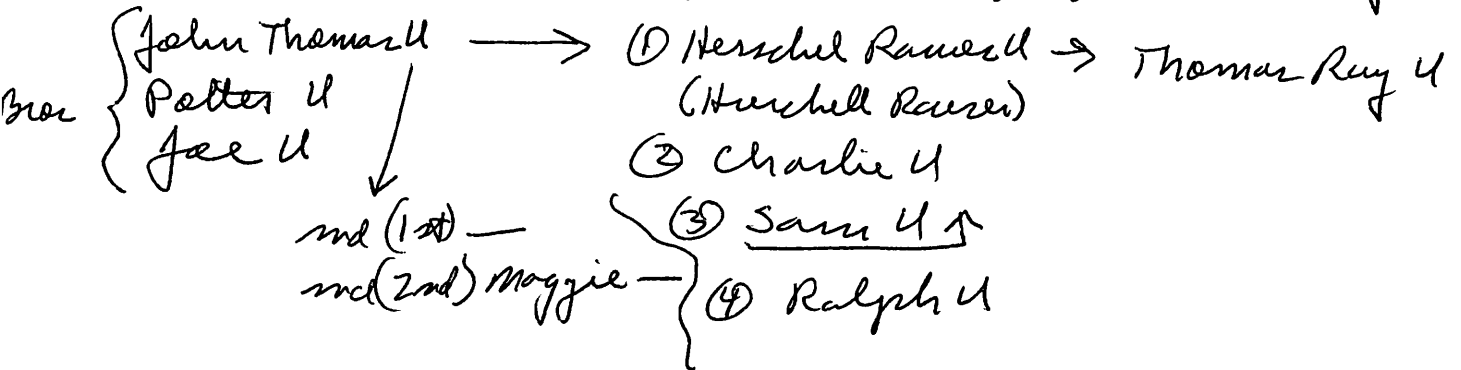 Bros { John Thomas U → ① Herschel Rawez U → Thomas Ray U
Potter U (Hurchell Rauzei)
Joe U ② Charlie U
md (1st) — ③ Sam U ↑
md (2nd) Maggie — ④ Ralph U